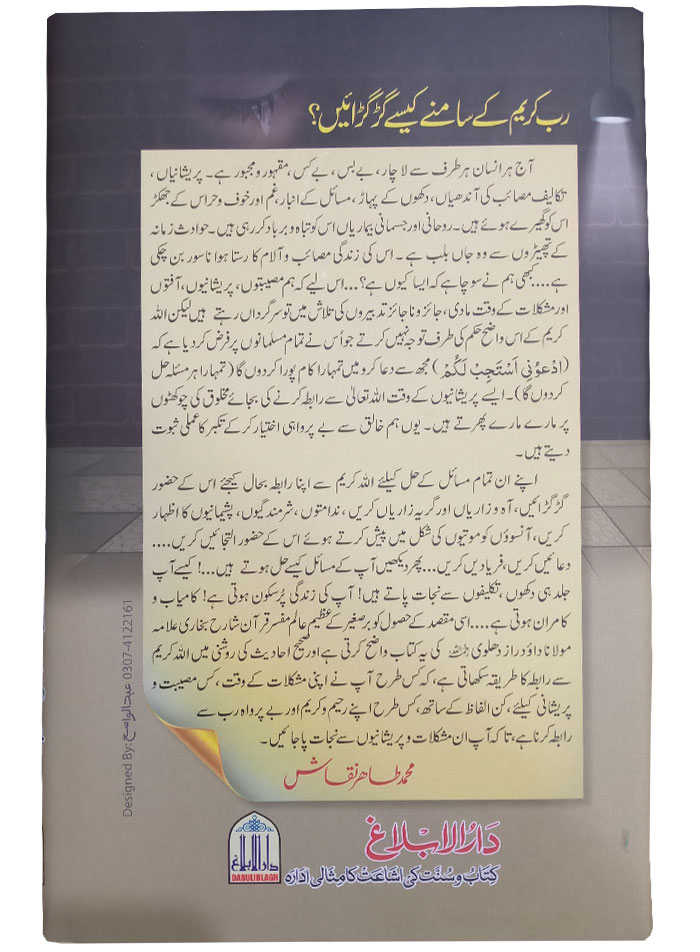 رب کریم کے سامنے کیسے گڑگڑائیں؟
آج ہر انسان ہر طرف سے لاچار، بے بس، بے کس، مقہور و مجبور ہے۔ پریشانیاں،
تکالیف مصائب کی آندھیاں، دکھوں کے پہاڑ، مسائل کے انبار، غم اور خوف و حراس کے جھکڑ
اس کو گھیرے ہوئے ہیں۔ روحانی اور جسمانی بیماریاں اس کو تباہ و برباد کر رہی ہیں۔ حوادث زمانہ
کے تھپیڑوں سے وہ جاں بلب ہے۔ اس کی زندگی مصائب و آلام کا رستا ہوا ناسور بن چکی
ہے.... کبھی ہم نے سوچا ہے کہ ایسا کیوں ہے؟... اس لیے کہ ہم مصیبتوں، پریشانیوں، آفتوں
اور مشکلات کے وقت مادی، جائز و ناجائز تدبیروں کی تلاش میں تو سرگرداں رہتے ہیں لیکن اللہ
کریم کے اس واضح حکم کی طرف توجہ نہیں کرتے جو اُس نے تمام مسلمانوں پر فرض کر دیا ہے کہ
(ادْعُوْنِی اَسْتَجِبْ لَکُمْ) مجھ سے دعا کرو میں تمہارا کام پورا کردوں گا (تمہارا ہر مسئلہ حل
کردوں گا)۔ ایسے پریشانیوں کے وقت اللہ تعالیٰ سے رابطہ کرنے کی بجائے مخلوق کی چوکھٹوں
پر مارے مارے پھرتے ہیں۔ یوں ہم خالق سے بے پرواہی اختیار کرکے تکبر کا عملی ثبوت
دیتے ہیں۔
اپنے ان تمام مسائل کے حل کیلئے اللہ کریم سے اپنا رابطہ بحال کیجئے اس کے حضور
گڑگڑائیں، آہ و زاریاں اور گریہ زاریاں کریں، ندامتوں، شرمندگیوں، پشیمانیوں کا اظہار
کریں، آنسوؤں کو موتیوں کی شکل میں پیش کرتے ہوئے اس کے حضور التجائیں کریں....
دعائیں کریں، فریادیں کریں... پھر دیکھیں آپ کے مسائل کیسے حل ہوتے ہیں...! کیسے آپ
جلد ہی دکھوں، تکلیفوں سے نجات پاتے ہیں! آپ کی زندگی پُرسکون ہوتی ہے! کامیاب و
کامران ہوتی ہے.... اسی مقصد کے حصول کو برصغیر کے عظیم عالم مفسر قرآن شارح بخاری علامہ
مولانا داؤد راز دھلوی رحمہ اللہ کی یہ کتاب واضح کرتی ہے اور صحیح احادیث کی روشنی میں اللہ کریم
سے رابطہ کا طریقہ سکھاتی ہے، کہ کس طرح آپ نے اپنی مشکلات کے وقت، کس مصیبت و
پریشانی کیلئے، کن الفاظ کے ساتھ، کس طرح اپنے رحیم و کریم اور بے پرواہ رب سے
رابطہ کرنا ہے، تاکہ آپ ان مشکلات و پریشانیوں سے نجات پا جائیں۔
محمد طاہر نقاش
دَارُالاِبْلاغ
کِتاب و سُنّت کی اشاعَت کا مِثالی ادارہ
دارالابلاغ
DARULIBLAGH
Designed By: عبدالواسع 0307-4122161